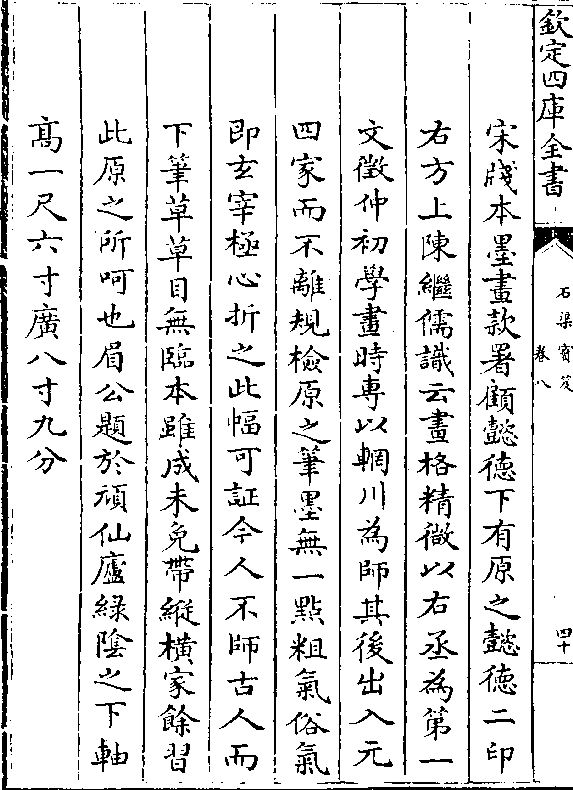 欽定四庫全書
石渠寳笈
卷八
四十
宋牋本墨畫款署顧懿德下有原之懿德二印
右方上陳繼儒識云畫格精微以右丞為第一
文徵仲初學畫時専以輞川為師其後出入元
四家而不離規檢原之筆墨無一點粗氣俗氣
即玄宰極心折之此幅可証今人不師古人而
下筆草草目無臨本雖成未免帶縱横家餘習
此原之所呵也眉公題於頑仙廬緑陰之下軸
髙一尺六寸廣八寸九分